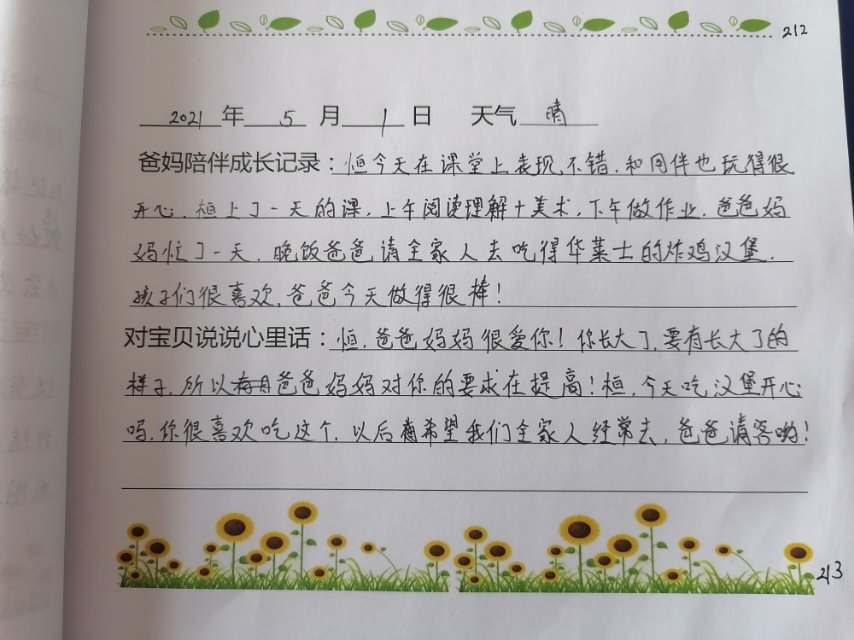 212
2021 年 5 月 1 日 天气 晴
爸妈陪伴成长记录：恒今天在课堂上表现不错，和同伴也玩得很
开心。桓上了一天的课，上午阅读理解十美术，下午做作业。爸爸妈
妈忙了一天，晚饭爸爸请全家人去吃得华莱士的炸鸡汉堡，
孩子们很喜欢，爸爸今天做得很棒！
对宝贝说说心里话：恒，爸爸妈妈很爱你！你长大了，要有长大了的
样子，所以爸爸妈妈对你的要求在提高！桓，今天吃汉堡开心
吗，你很喜欢吃这个，以后希望我们全家人经常去，爸爸请客哟！
213